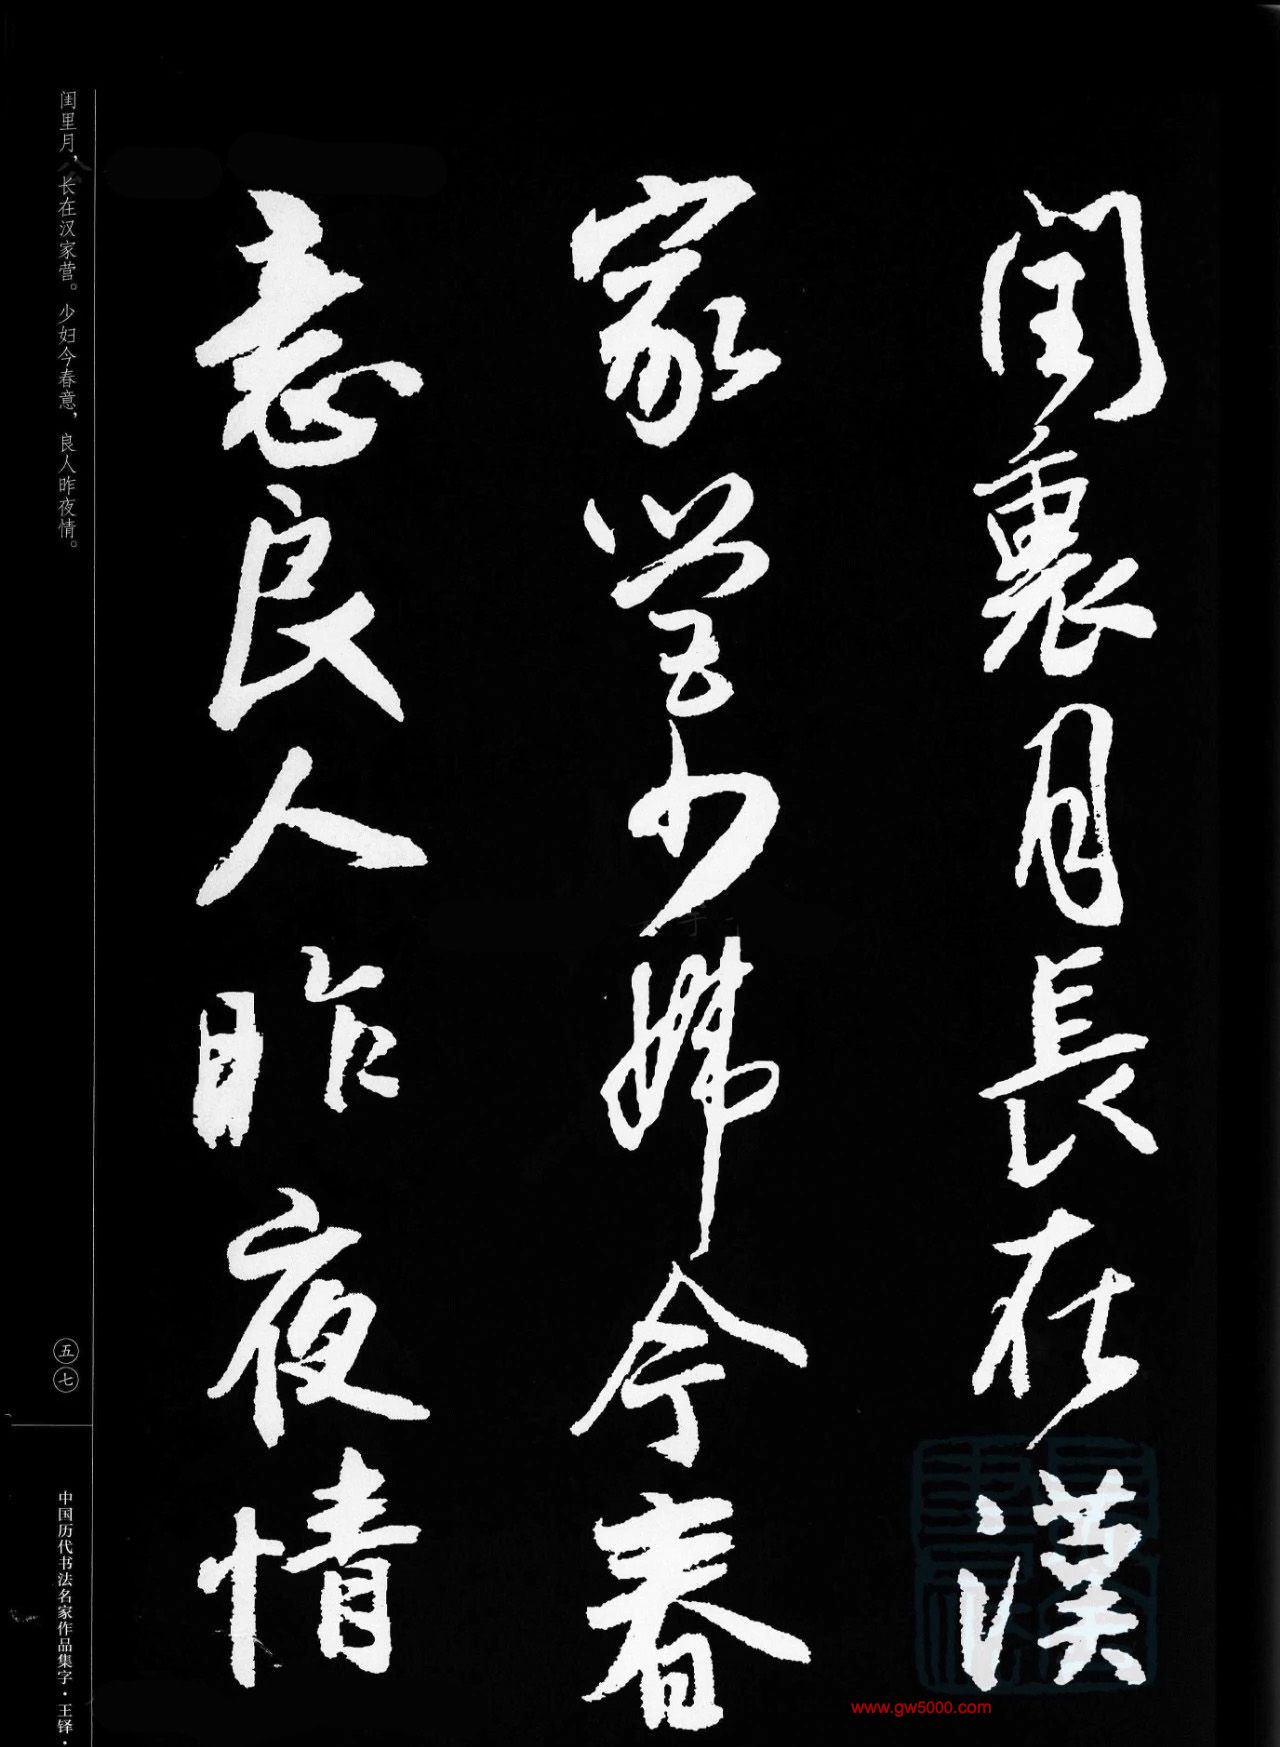 闺裏月長在漢
家営少婦今春
意良人昨夜情
闺里月，长在汉家营。少妇今春意，良人昨夜情。
五七
中国历代书法名家作品集字·王铎·
www.gw5000.com